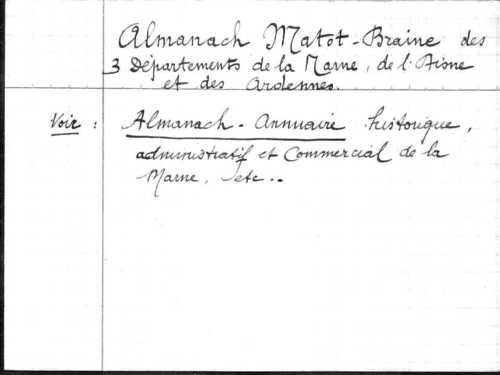 Almanach Matot-Braine des
3 Départements de la Marne, de l'Aisne
et des Ardennes.
Voir : Almanach - Annuaire historique,
administratif et Commercial de la
Marne, etc..